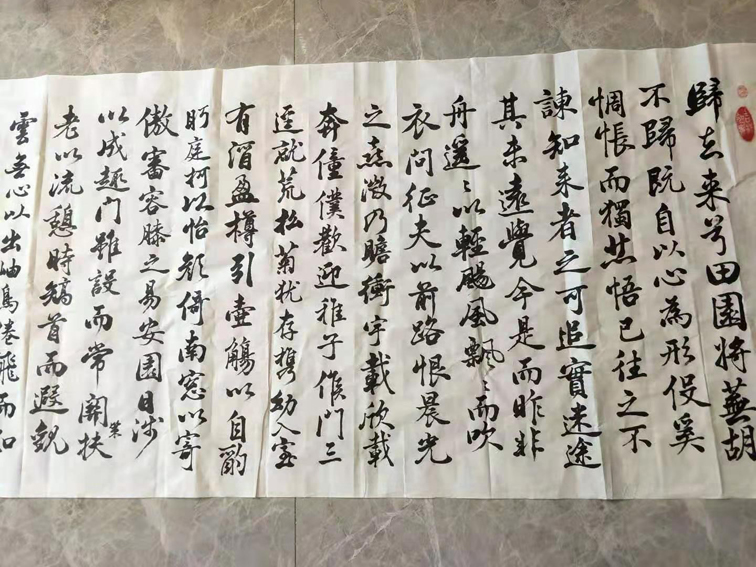 歸去来兮田園將蕪胡
不歸既自以心為形役奚
惆悵而獨悲悟已往之不
諫知来者之可追實迷途
其未遠覺今是而昨非
舟遥〻以輕颺風飄〻而吹
衣問征夫以前路恨晨光
之熹微乃瞻衡宇載欣載
奔僮僕歡迎稚子候門三
逕就荒松菊犹存携幼入室
有酒盈樽引壺觴以自酌
眄庭柯以怡顔倚南窓以寄
傲審容膝之易安園日涉
以成趣門雖設而常關策扶
老以流憩時矯首而遐觀
雲無心以出岫鳥倦飛而知